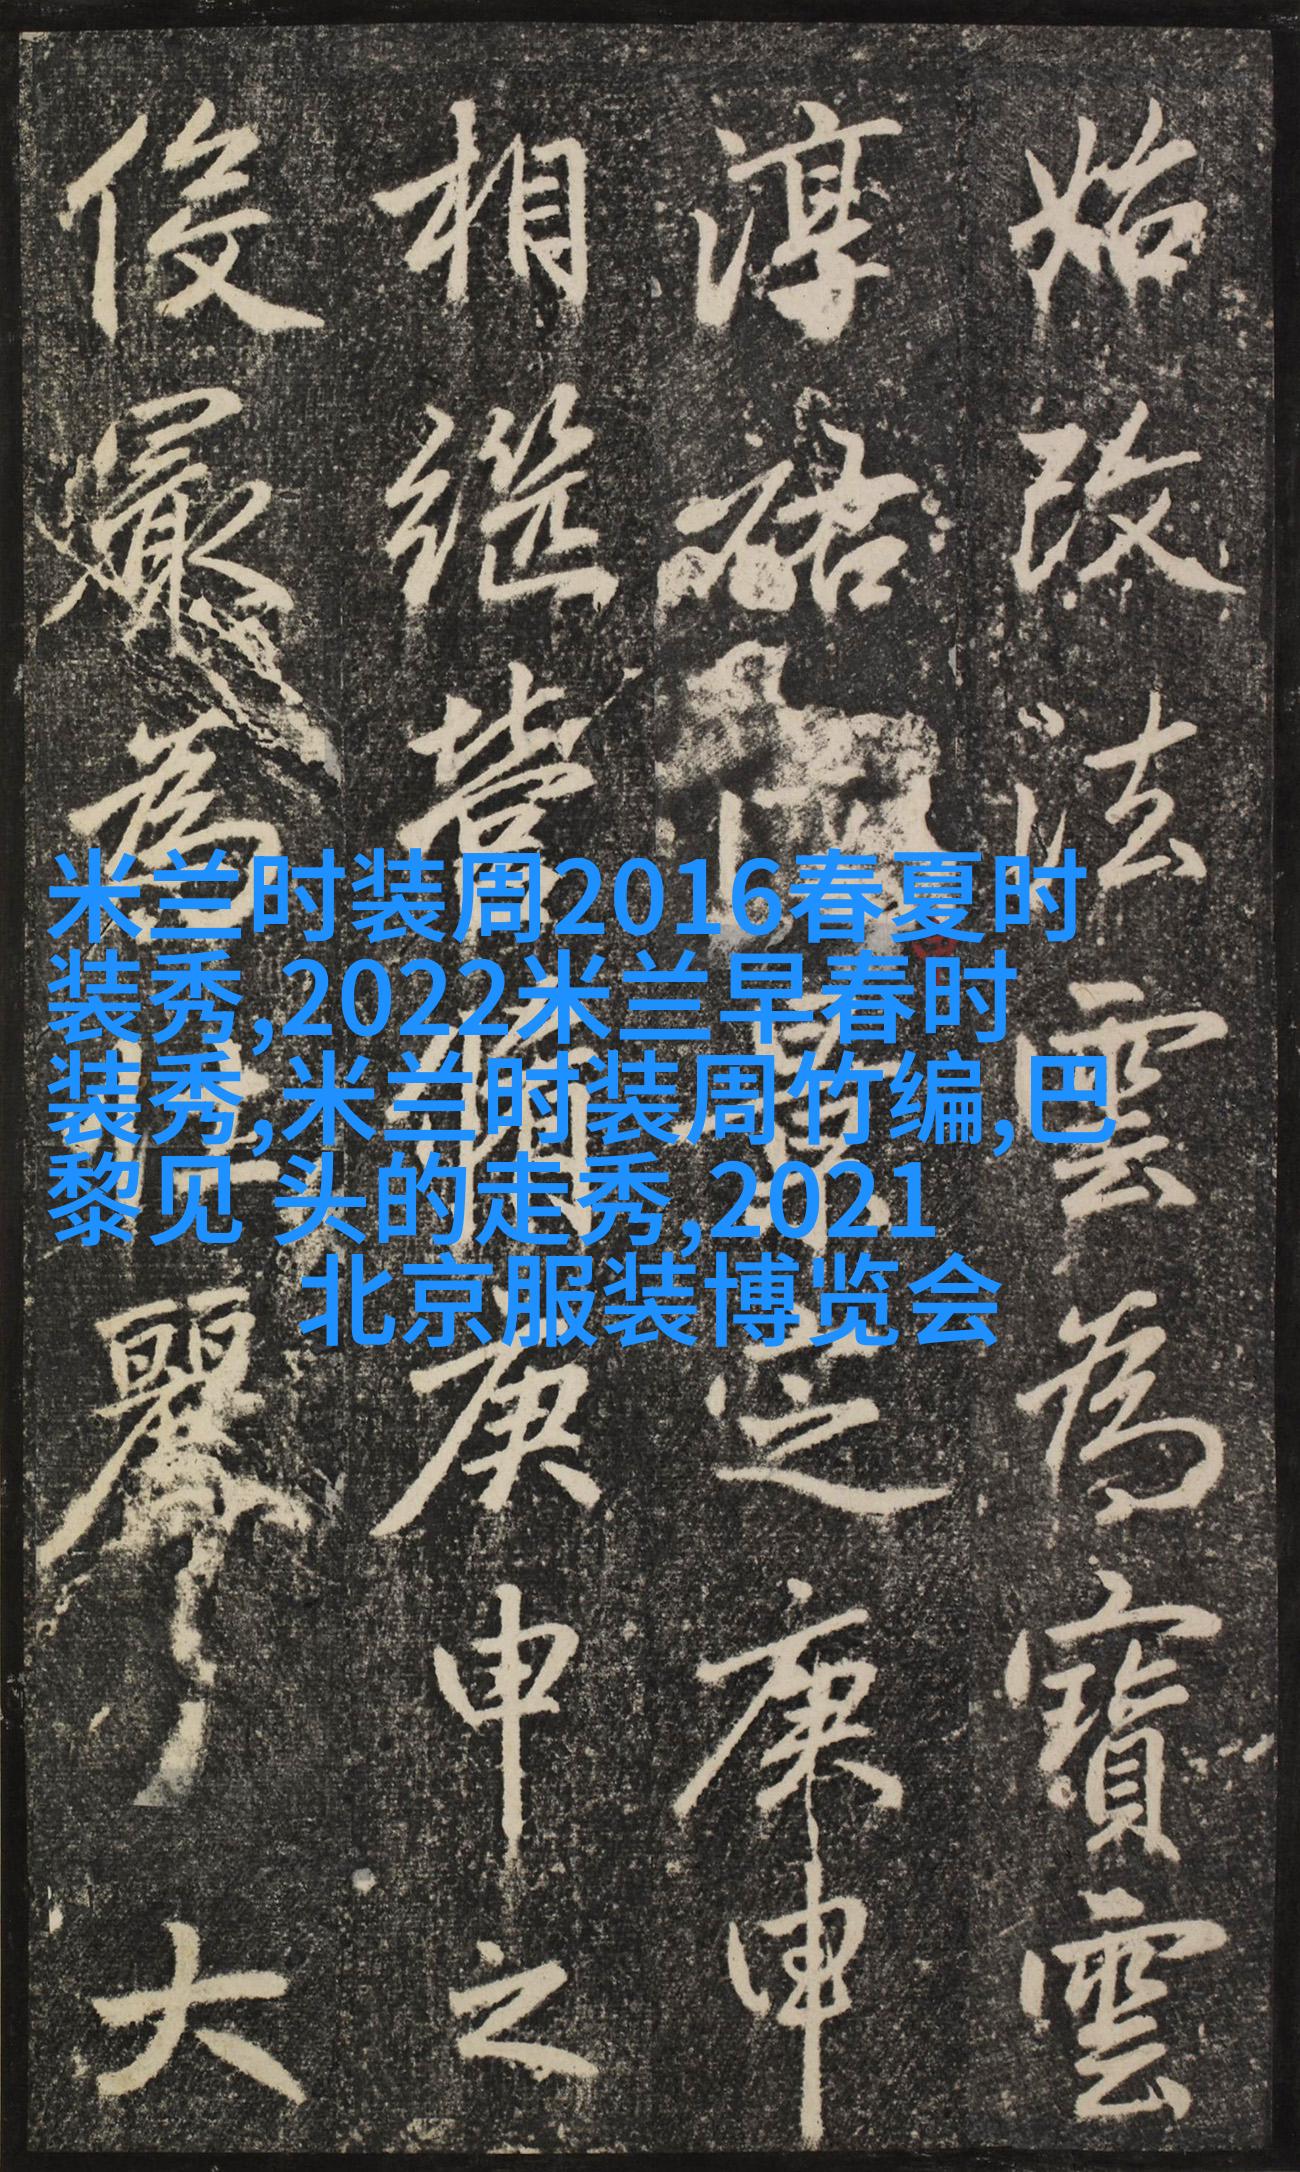 始改法雲為寶雲
淳祐
之庚申
相继营
庚申之
俊最為
麗
大
米兰时装周2016春夏时
装秀,2022米兰早春时
装秀,米兰时装周竹编,巴
黎见 头的走秀,2021
北京服装博览会